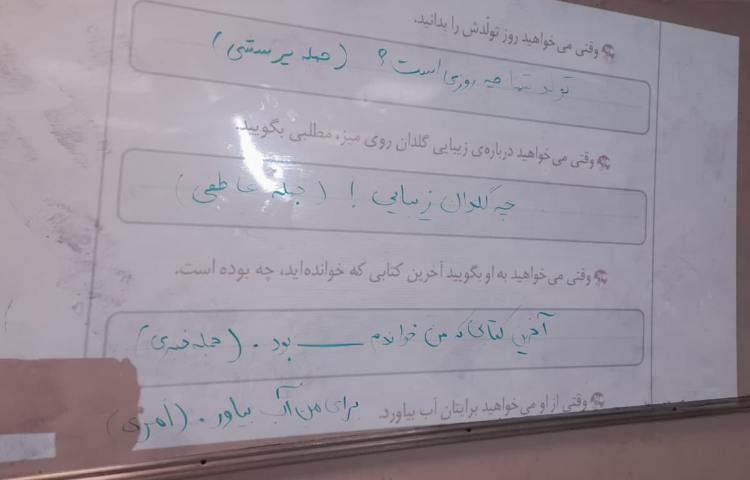 وقتی می‌خواهید روز تولّدش را بدانید.
تولد شما چه روزی است؟ (جمله پرسشی)
وقتی می‌خواهید درباره‌ی زیبایی گلدان روی میز، مطلبی بگویید.
چه گلدان زیبایی! (جمله عاطفی)
وقتی می‌خواهید به او بگویید آخرین کتابی که خوانده‌اید، چه بوده است.
آخرین کتابی که من خواندم ـــــــ بود. (جمله خبری)
وقتی از او می‌خواهید برایتان آب بیاورد.
برای من آب بیاور. (امری)